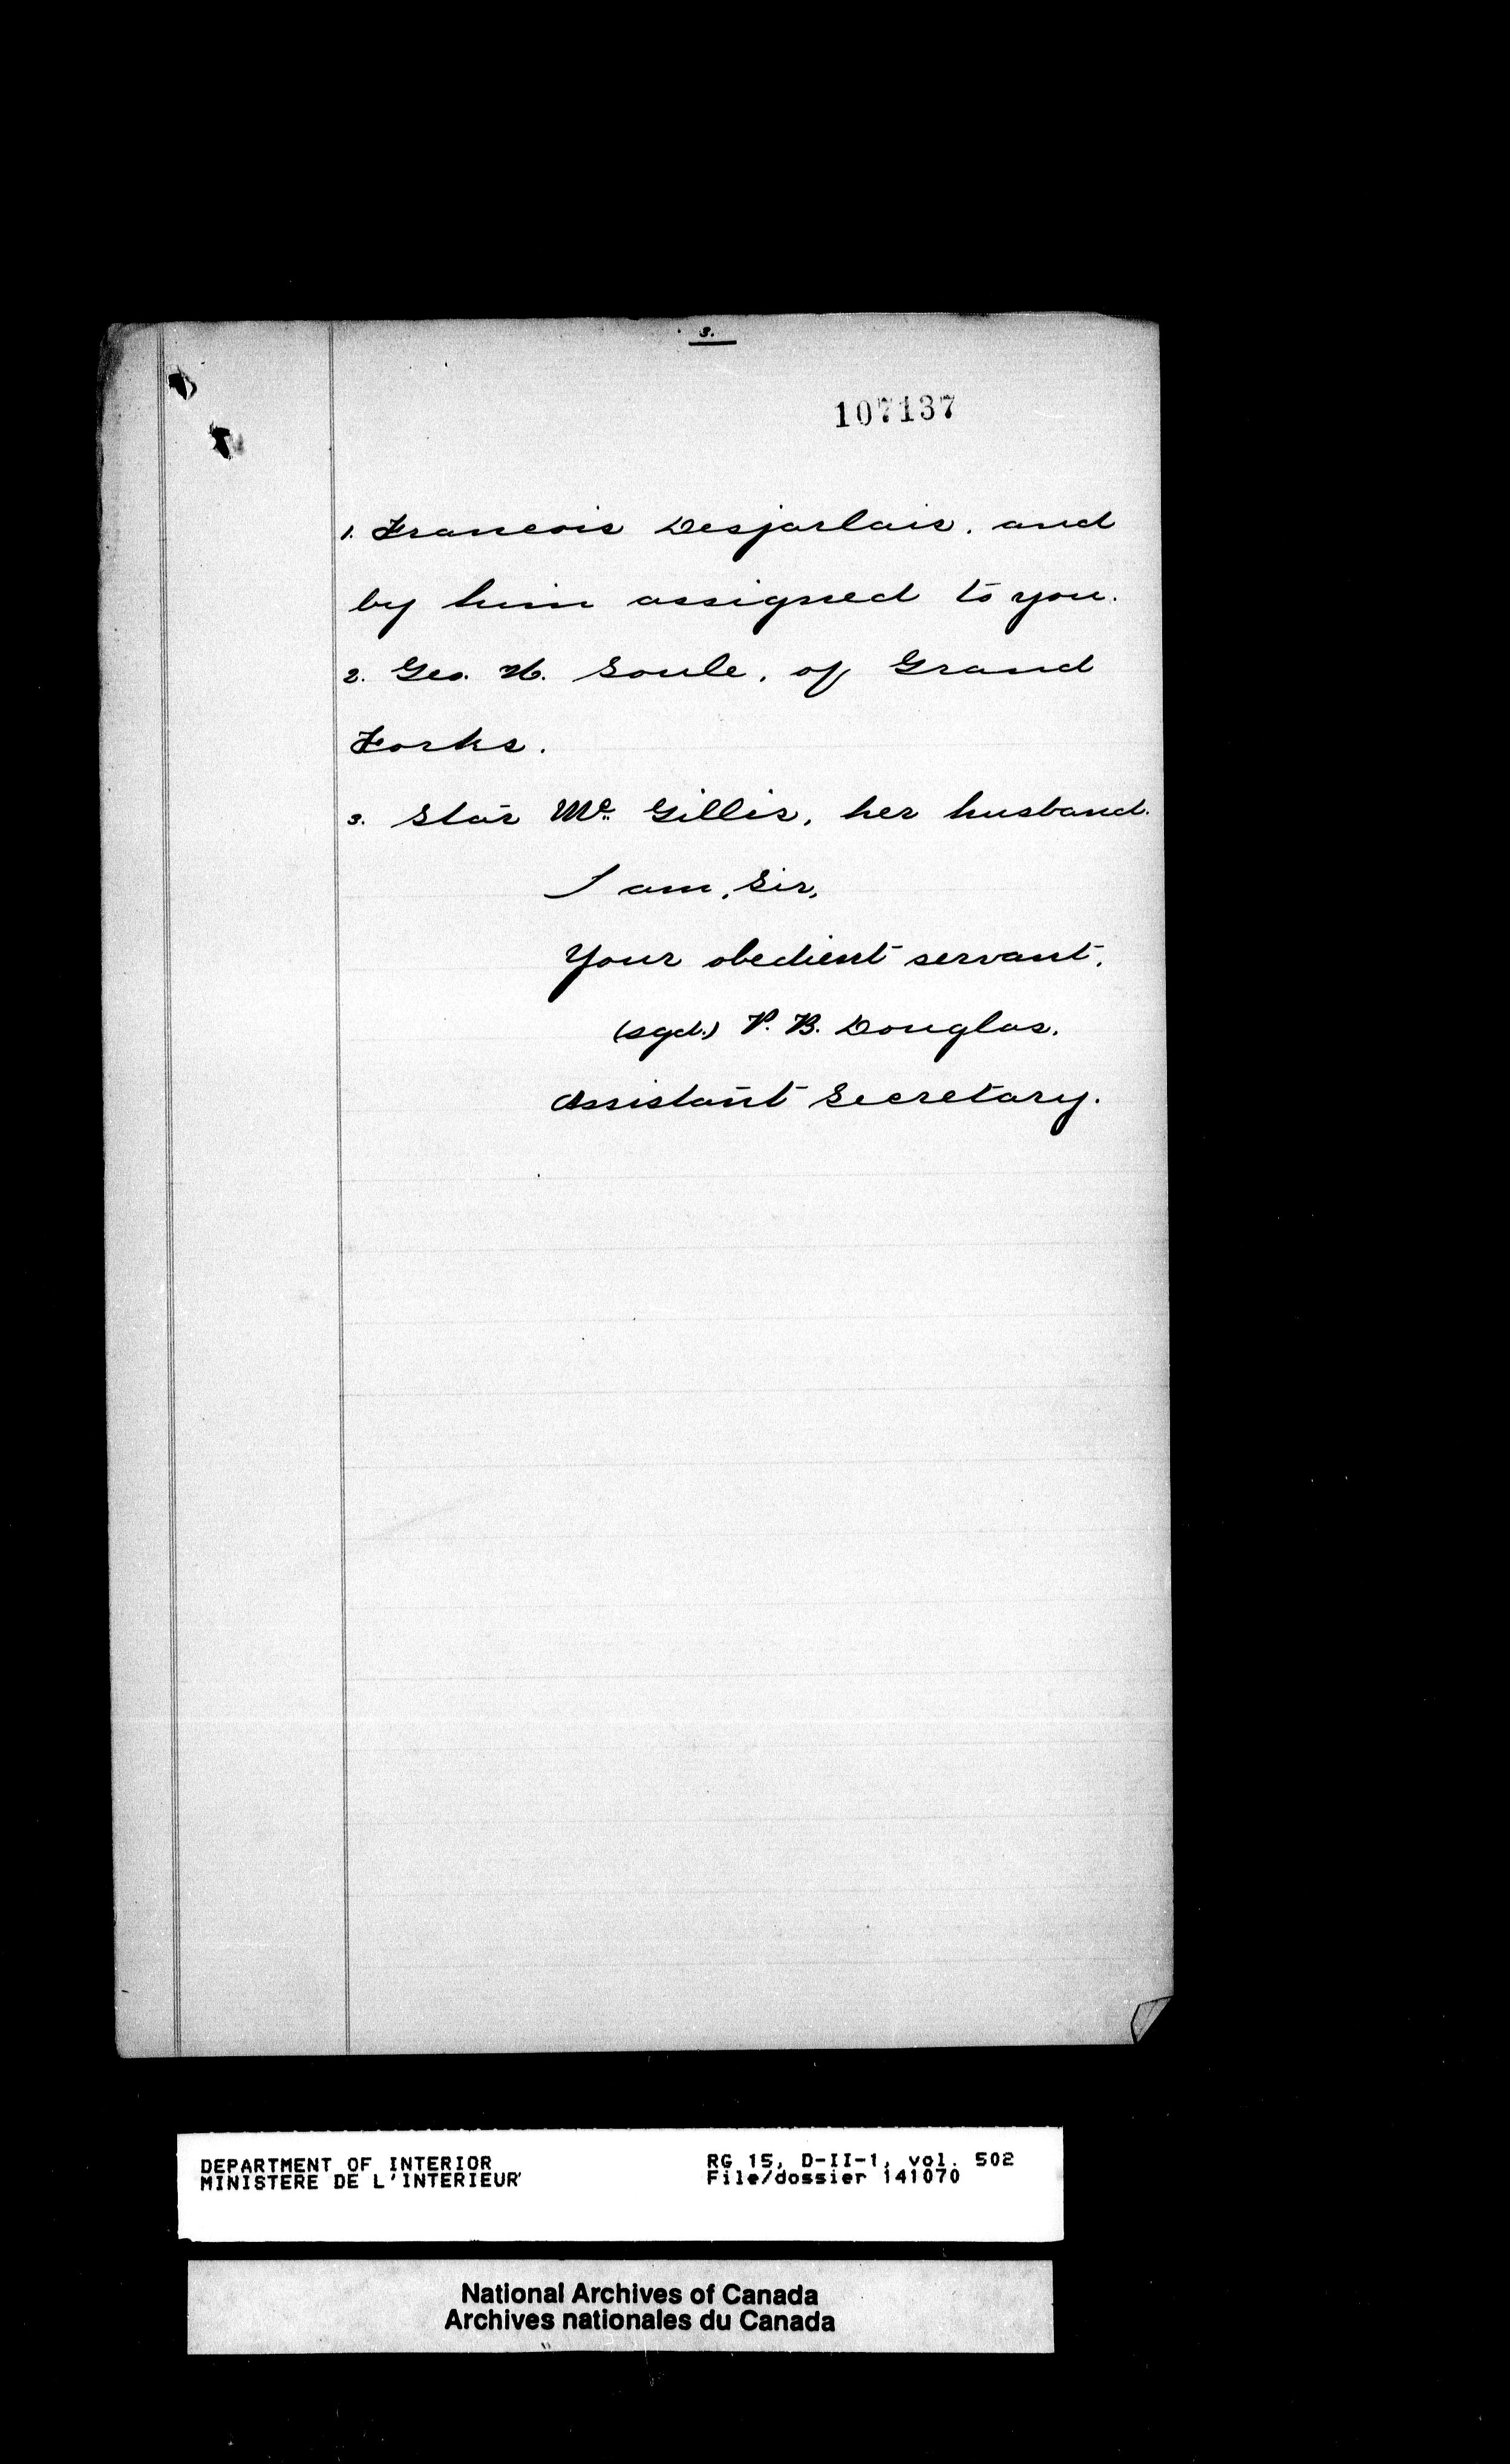 3.
107137
1. Francois Desjarlais. and
by him assigned to you.
2. Geo. H. Soule, of Grand
Forks.
3. Star Mc Gillis, her husband.
I am, Sir,
Your obedient servant,
(sgd.) P. B. Douglas.
Assistant Secretary.
DEPARTMENT OF INTERIOR
MINISTERE DE L'INTERIEUR
RG 15, D-II-1, vol. 502
File/dossier 141070
National Archives of Canada
Archives nationales du Canada